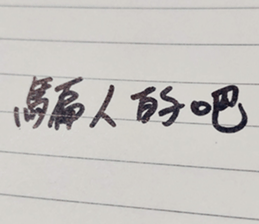 騙人的吧